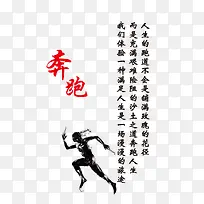 人生的跑道不会是铺满玫瑰的花径
而是充满艰难险阻的沙土之道奔跑人生
我们体验一种满足人生是一场漫漫的旅途
奔跑